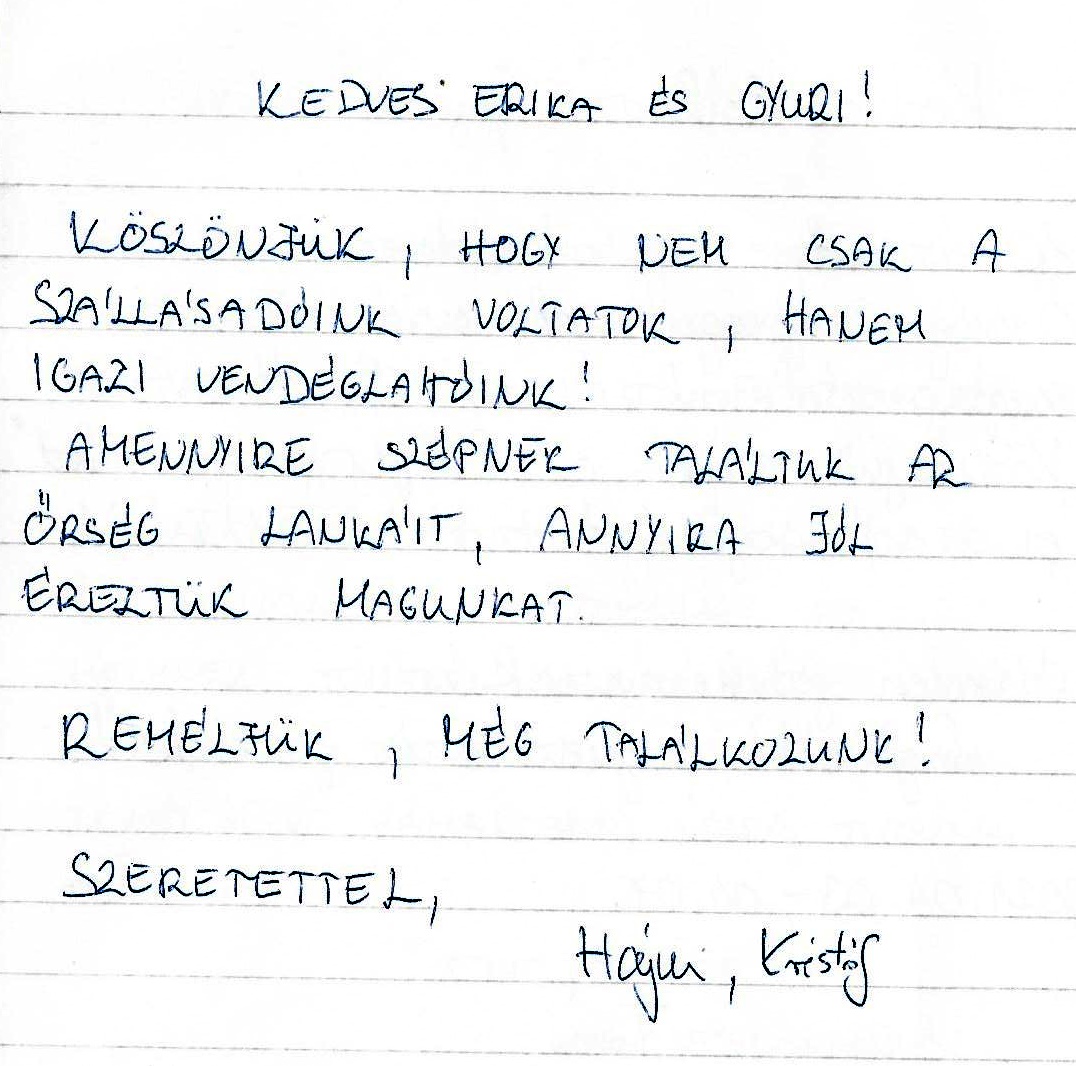 KEDVES ERIKA ÉS GYURI!
KÖSZÖNJÜK, HOGY NEM CSAK A
SZÁLLÁSADÓINK VOLTATOK, HANEM
IGAZI VENDÉGLÁTÓINK!
AMENNYIRE SZÉPNEK TALÁLTUK AZ
ŐRSÉG LANKÁIT, ANNYIRA JÓL
ÉREZTÜK MAGUNKAT.
REMÉLJÜK, MÉG TALÁLKOZUNK!
SZERETETTEL,
Hajni, Kristóf